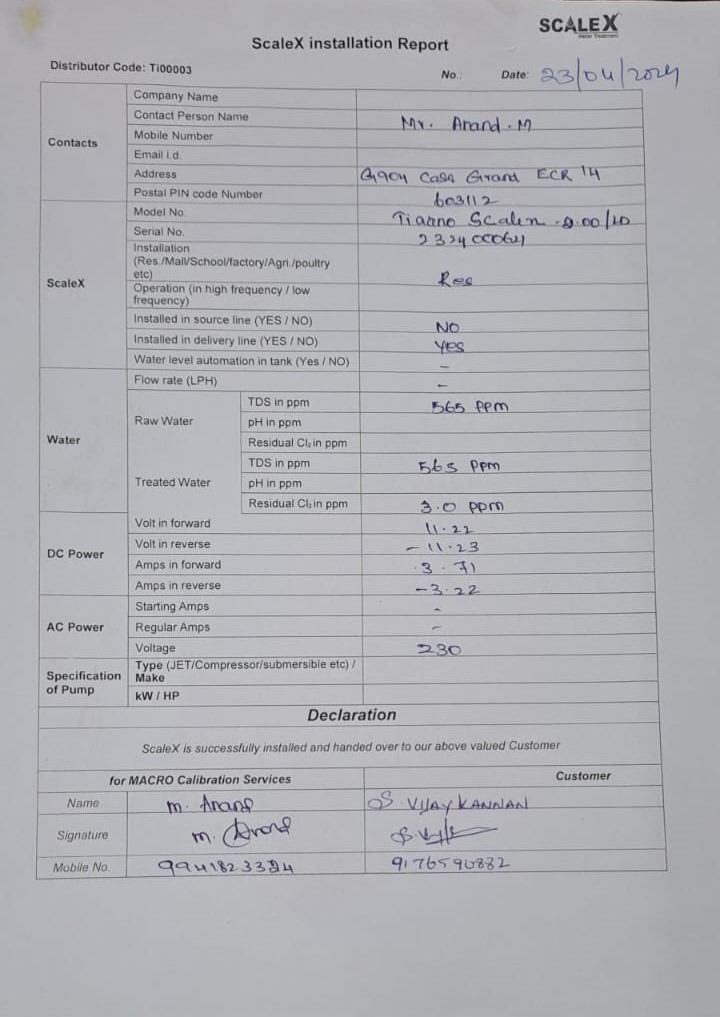 SCALEX
Water Treatment
ScaleX installation Report
Distributor Code: Ti00003
No.: Date: 23/04/2024
Contacts
Company Name
Contact Person Name Mr. Anand.M
Mobile Number
Email i.d.
Address Casa Grand ECR 14
Postal PIN code Number 603112
ScaleX
Model No.
Serial No.
Installation
(Res./Mall/School/factory/Agri./poultry
etc) Res
Operation (in high frequency / low
frequency)
Installed in source line (YES / NO) NO
Installed in delivery line (YES / NO) Yes
Water level automation in tank (Yes / NO) –
Water
Flow rate (LPH) –
Raw Water
TDS in ppm 565 ppm
pH in ppm
Residual Cl₂ in ppm
Treated Water
TDS in ppm 565 ppm
pH in ppm
Residual Cl₂ in ppm 3.0 ppm
DC Power
Volt in forward 11.22
Volt in reverse – 11.23
Amps in forward 3.71
Amps in reverse –3.22
AC Power
Starting Amps -
Regular Amps –
Voltage 230
Specification
of Pump
Type (JET/Compressor/submersible etc) /
Make
kW / HP
Declaration
ScaleX is successfully installed and handed over to our above valued Customer
for MACRO Calibration Services Customer
Name M. Anand S. VIJAY KANNAN
Signature M. Anand
Mobile No. 9176590882